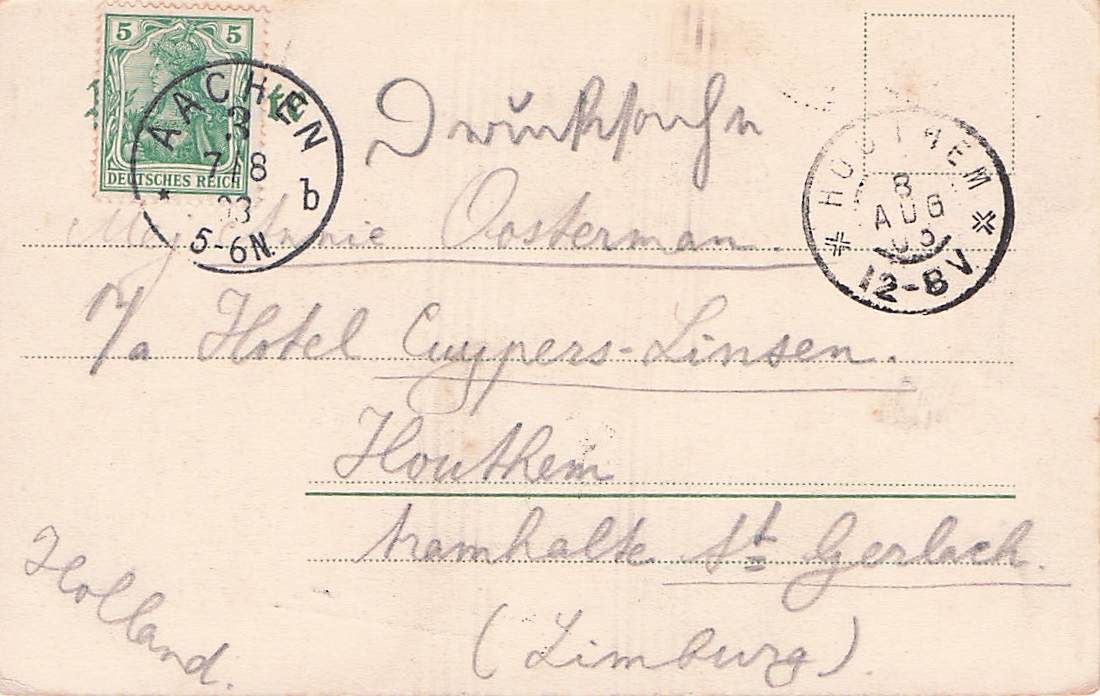 5 5
DEUTSCHES REICH
AACHEN
7 8
03
5-6N.
b
Drucksache
HOUTHEM
8
AUG
03
12-8V
Mej Annie Oosterman.
p/a Hotel Cuypers-Linsen.
Houthem
tramhalte St Gerlach.
(Limburg).
Holland.